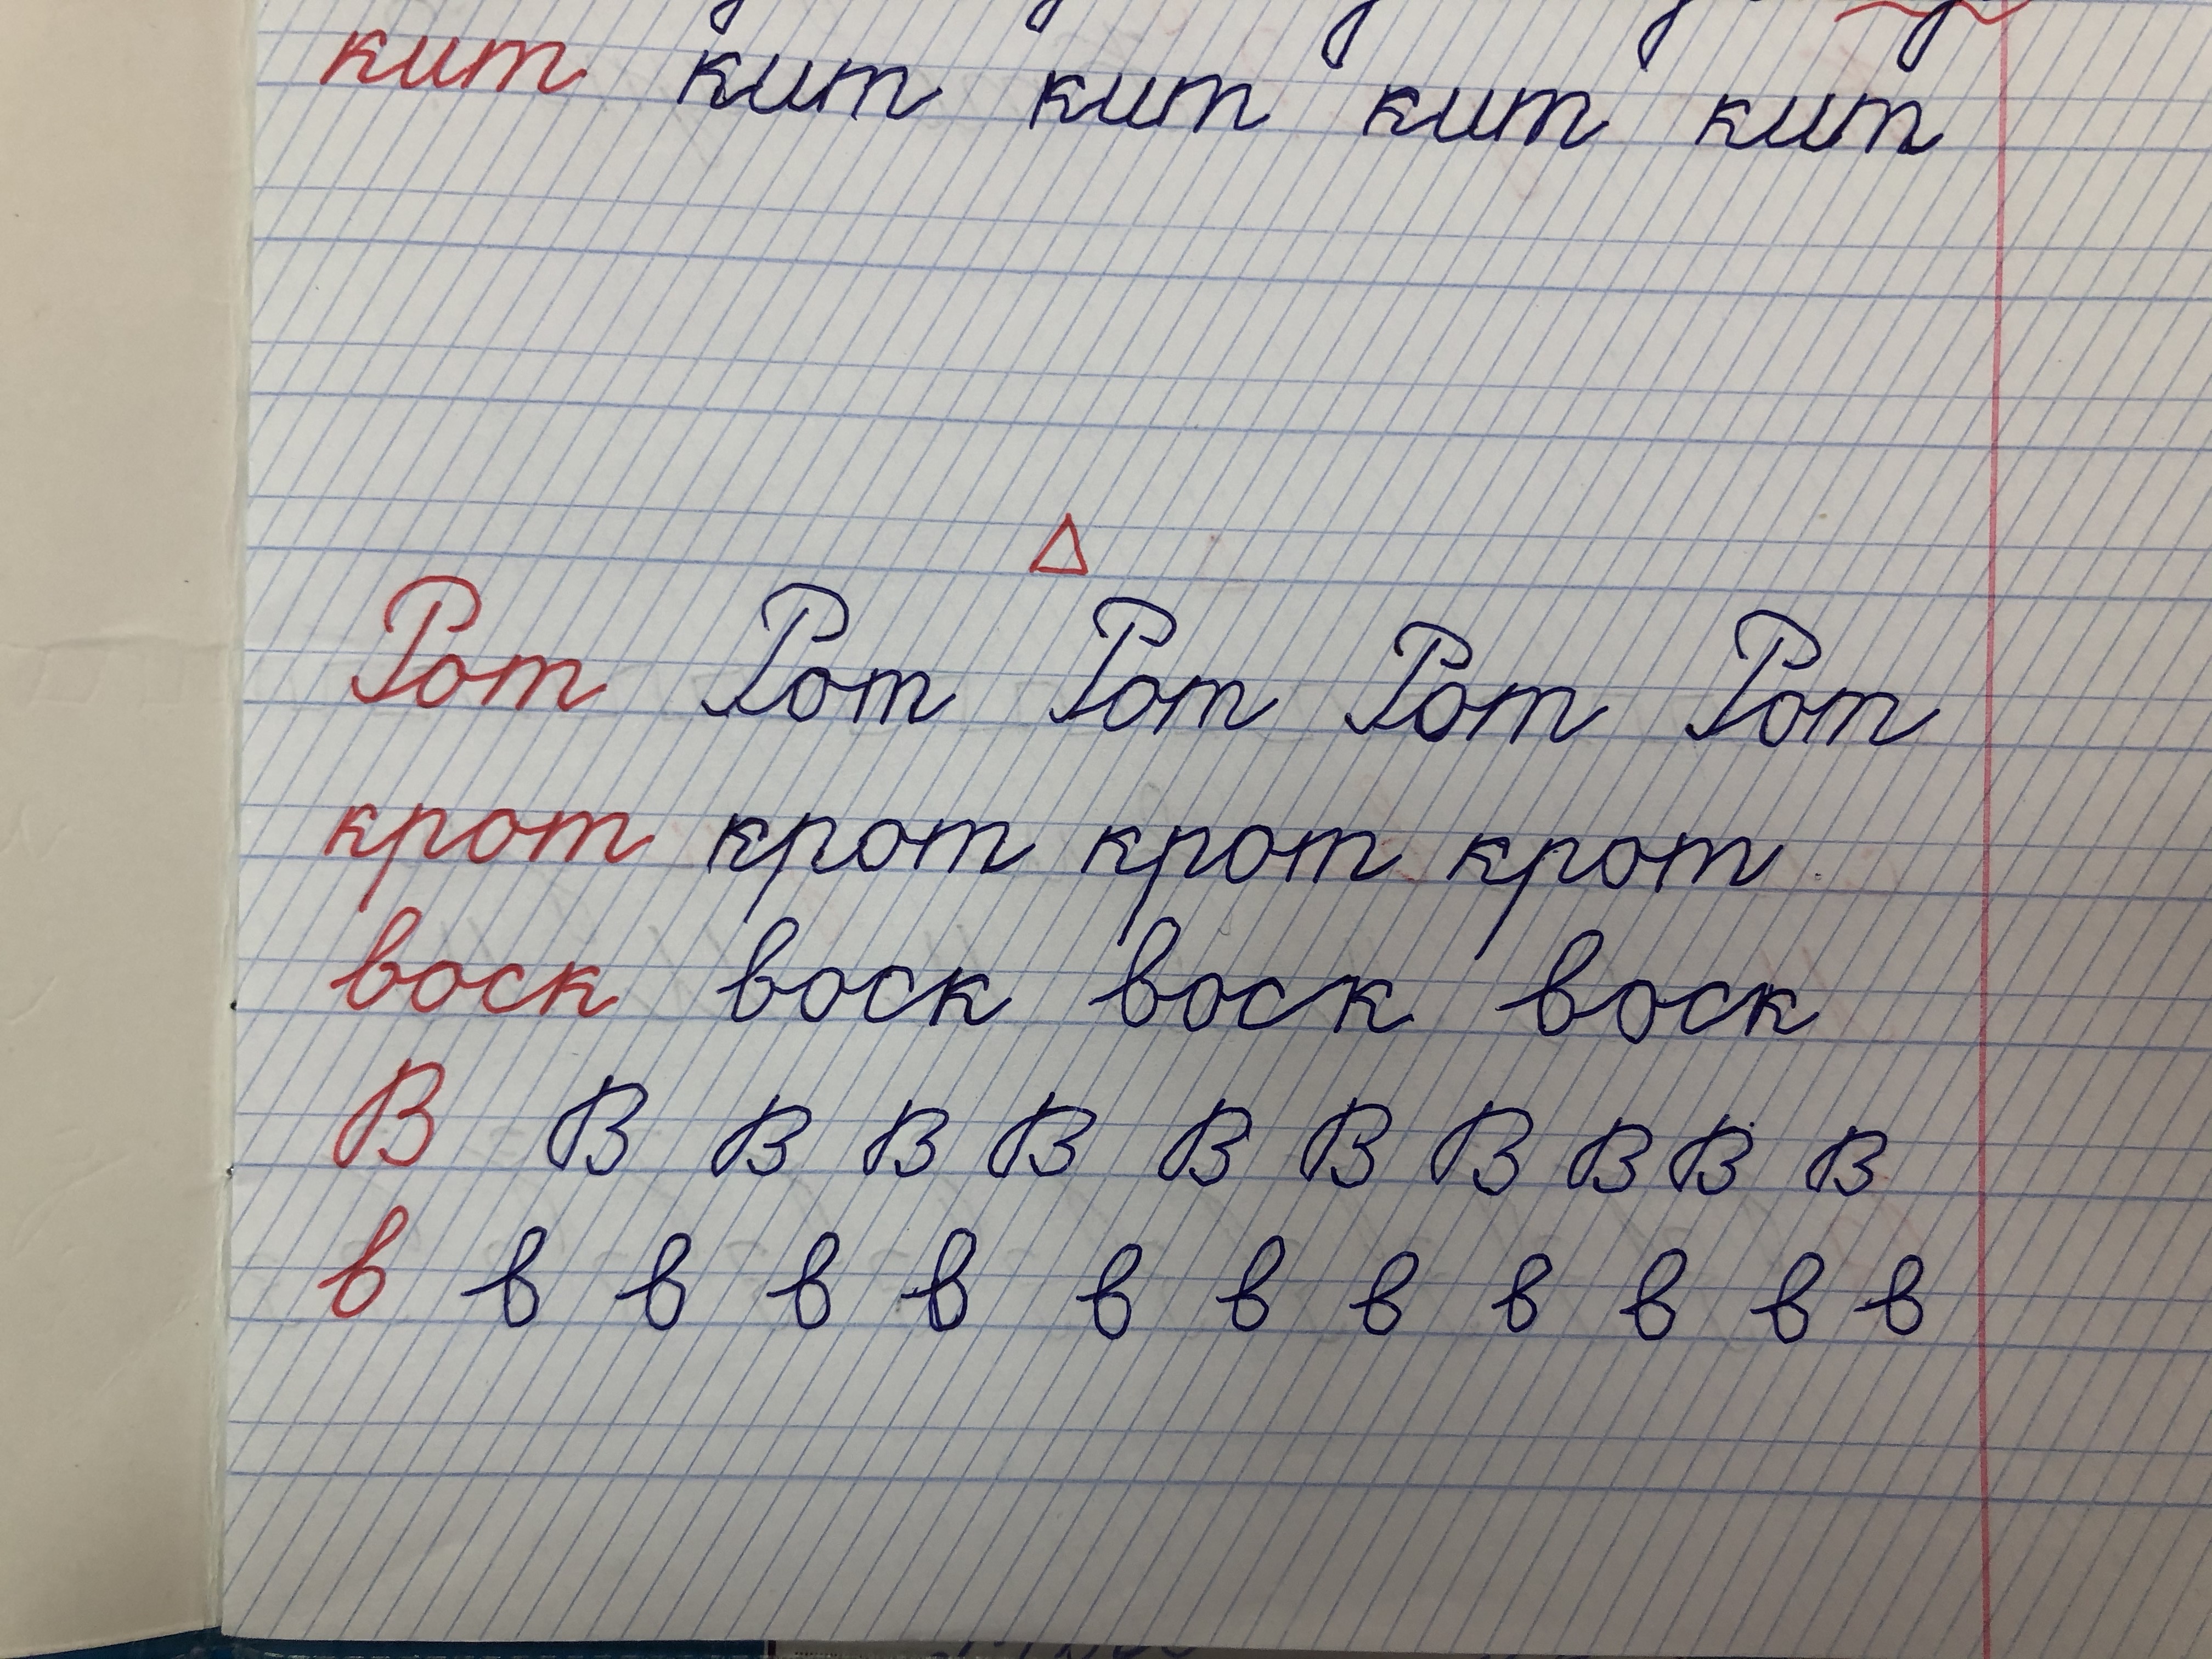 кит кит кит кит кит
Рот Рот Рот Рот Рот
крот крот крот крот
воск воск воск воск
В В В В В В В В В В В
в в в в в в в в в в в в